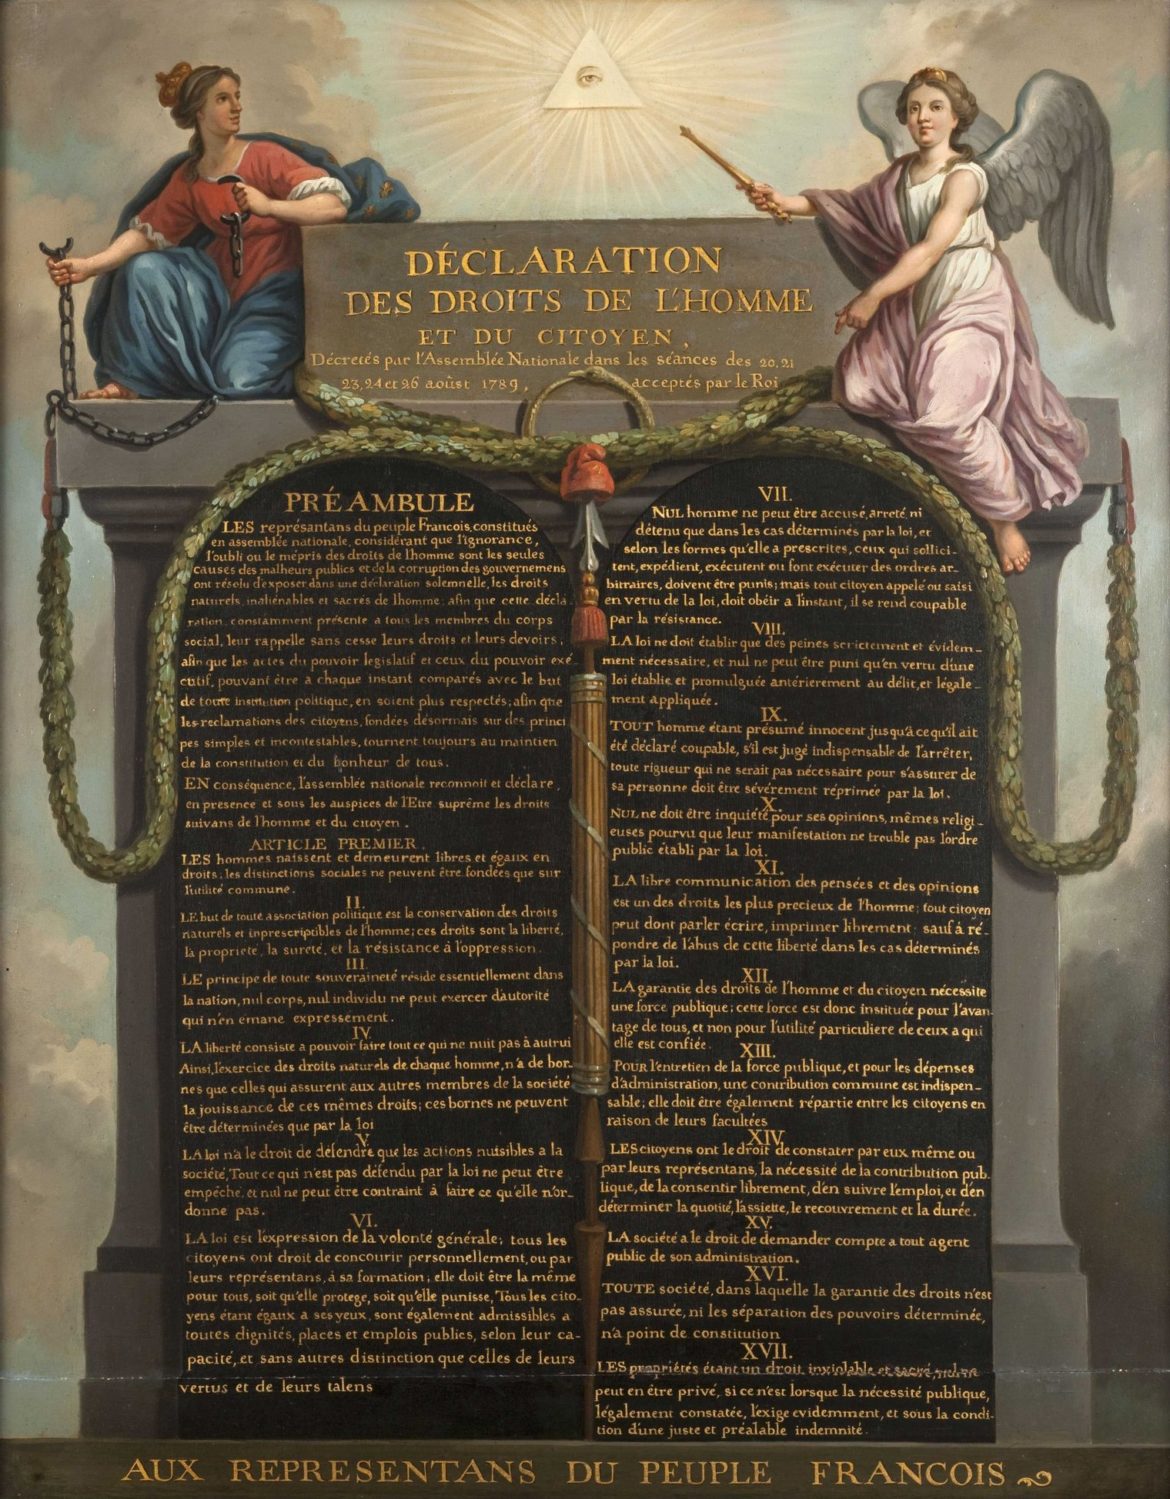 DÉCLARATION
DES DROITS DE L'HOMME
ET DU CITOYEN,
Décretés par l'Assemblée Nationale dans les séances des 20, 21
23, 24 et 26 aoûst 1789, acceptés par le Roi
PRÉAMBULE
LES représantans du peuple Francois, constitués
en assemblée nationale, considérant que l'ignorance,
l'oubli ou le mépris des droits de l'homme sont les seules
causes des malheurs publics et de la corruption des gouvernemens
ont résolu d'exposer dans une déclaration solemnelle, les droits
naturels, inaliénables et sacrés de l'homme; afin que cette décla
ration, constamment présente a tous les membres du corps
social, leur rappelle sans cesse leurs droits et leurs devoirs;
afin que les actes du pouvoir législatif et ceux du pouvoir exé-
cutif, pouvant être a chaque instant comparés avec le but
de toute institution politique, en soient plus respectés; afin que
les reclamations des citoyens, fondées désormais sur des princi
pes simples et incontestables, tournent toujours au maintien
de la constitution et du bonheur de tous.
EN conséquence, l'assemblée nationale reconnoit et déclare,
en presence et sous les auspices de l'Etre suprême les droits
suivans de l'homme et du citoyen.
ARTICLE PREMIER.
LES hommes naissent et demeurent libres et égaux en
droits; les distinctions sociales ne peuvent être fondées que sur
l'utilité commune.
II.
LE but de toute association politique est la conservation des droits
naturels et inprescriptibles de l'homme; ces droits sont la liberté,
la propriété, la sureté, et la résistance à l'oppression.
III.
LE principe de toute souveraineté réside essentiellement dans
la nation, nul corps, nul individu ne peut exercer d'autorité
qui n'en émane expressément.
IV.
LA liberté consiste a pouvoir faire tout ce qui ne nuit pas à autrui
Ainsi, l'exercice des droits naturels de chaque homme, n'a de bor-
nes que celles qui assurent aux autres membres de la société
la jouissance de ces mêmes droits; ces bornes ne peuvent
être déterminées que par la loi
V.
LA loi n'a le droit de défendre que les actions nuisibles a la
société, Tout ce qui n'est pas défendu par la loi ne peut être
empêché, et nul ne peut être contraint à faire ce qu'elle n'or-
donne pas.
VI.
LA loi est l'expression de la volonté générale; tous les
citoyens ont droit de concourir personnellement, ou par
leurs représentans, à sa formation; elle doit être la même
pour tous, soit qu'elle protege, soit qu'elle punisse, Tous les cito-
yens étant égaux à ses yeux, sont également admissibles a
toutes dignités, places et emplois publics, selon leur ca-
pacité, et sans autres distinction que celles de leurs
vertus et de leurs talens
VII.
NUL homme ne peut être accusé, arreté, ni
détenu que dans les cas déterminés par la loi, et
selon les formes qu'elle a prescrites, ceux qui sollici-
tent, expédient, exécutent ou font exécuter des ordres ar-
bitraires, doivent être punis; mais tout citoyen appelé ou saisi
en vertu de la loi, doit obéir a l'instant, il se rend coupable
par la résistance.
VIII.
LA loi ne doit établir que des peines scrictement et évidem-
ment nécessaire, et nul ne peut être puni qu'en vertu d'une
loi établie et promulguée antérierement au délit, et légale-
ment appliquée.
IX.
TOUT homme étant présumé innocent jusqu'a ce qu'il ait
été déclaré coupable, s'il est jugé indispensable de l'arrêter,
toute rigueur qui ne serait pas nécessaire pour s'assurer de
sa personne doit être sévérement réprimée par la loi.
X.
NUL ne doit être inquiété pour ses opinions, mêmes religi-
euses pourvu que leur manifestation ne trouble pas l'ordre
public établi par la loi.
XI.
LA libre communication des pensées et des opinions
est un des droits les plus precieux de l'homme; tout citoyen
peut dont parler écrire, imprimer librement; sauf à ré-
pondre de l'abus de cette liberté dans les cas déterminés
par la loi.
XII.
LA garantie des droits de l'homme et du citoyen nécessite
une force publique; cette force est donc instituée pour l'avan-
tage de tous, et non pour l'utilité particuliere de ceux a qui
elle est confiée.
XIII.
POUR l'entretien de la force publique, et pour les dépenses
d'administration, une contribution commune est indispen-
sable; elle doit être également répartie entre les citoyens en
raison de leurs facultées
XIV.
LES citoyens ont le droit de constater par eux même ou
par leurs représentans, la nécessité de la contribution pub-
lique, de la consentir librement, d'en suivre l'emploi, et d'en
déterminer la quotité, l'assiette, le recouvrement et la durée.
XV.
LA société a le droit de demander compte a tout agent
public de son administration.
XVI.
TOUTE société, dans laquelle la garantie des droits n'est
pas assurée, ni les séparation des pouvoirs déterminée,
n'a point de constitution
XVII.
LES propriétés étant un droit inviolable et sacré, nul ne
peut en être privé, si ce n'est lorsque la nécessité publique,
légalement constatée, l'exige evidemment, et sous la condi-
tion d'une juste et préalable indemnité.
AUX REPRESENTANS DU PEUPLE FRANCOIS